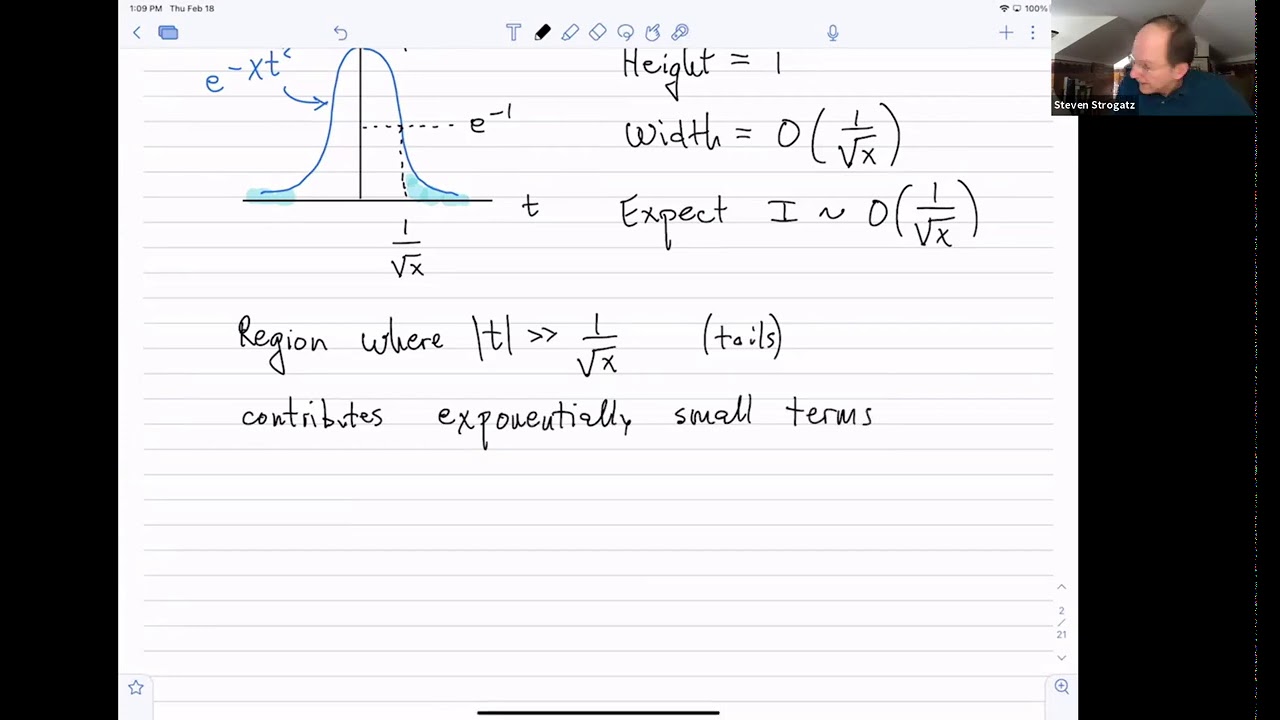 1:09 PM Thu Feb 18
100%
Steven Strogatz
e^{-xt^2}
e^{-1}
t
1/√x
Height = 1
Width = O(1/√x)
Expect I ~ O(1/√x)
Region where |t| >> 1/√x (tails)
contributes exponentially small terms
2
/
21